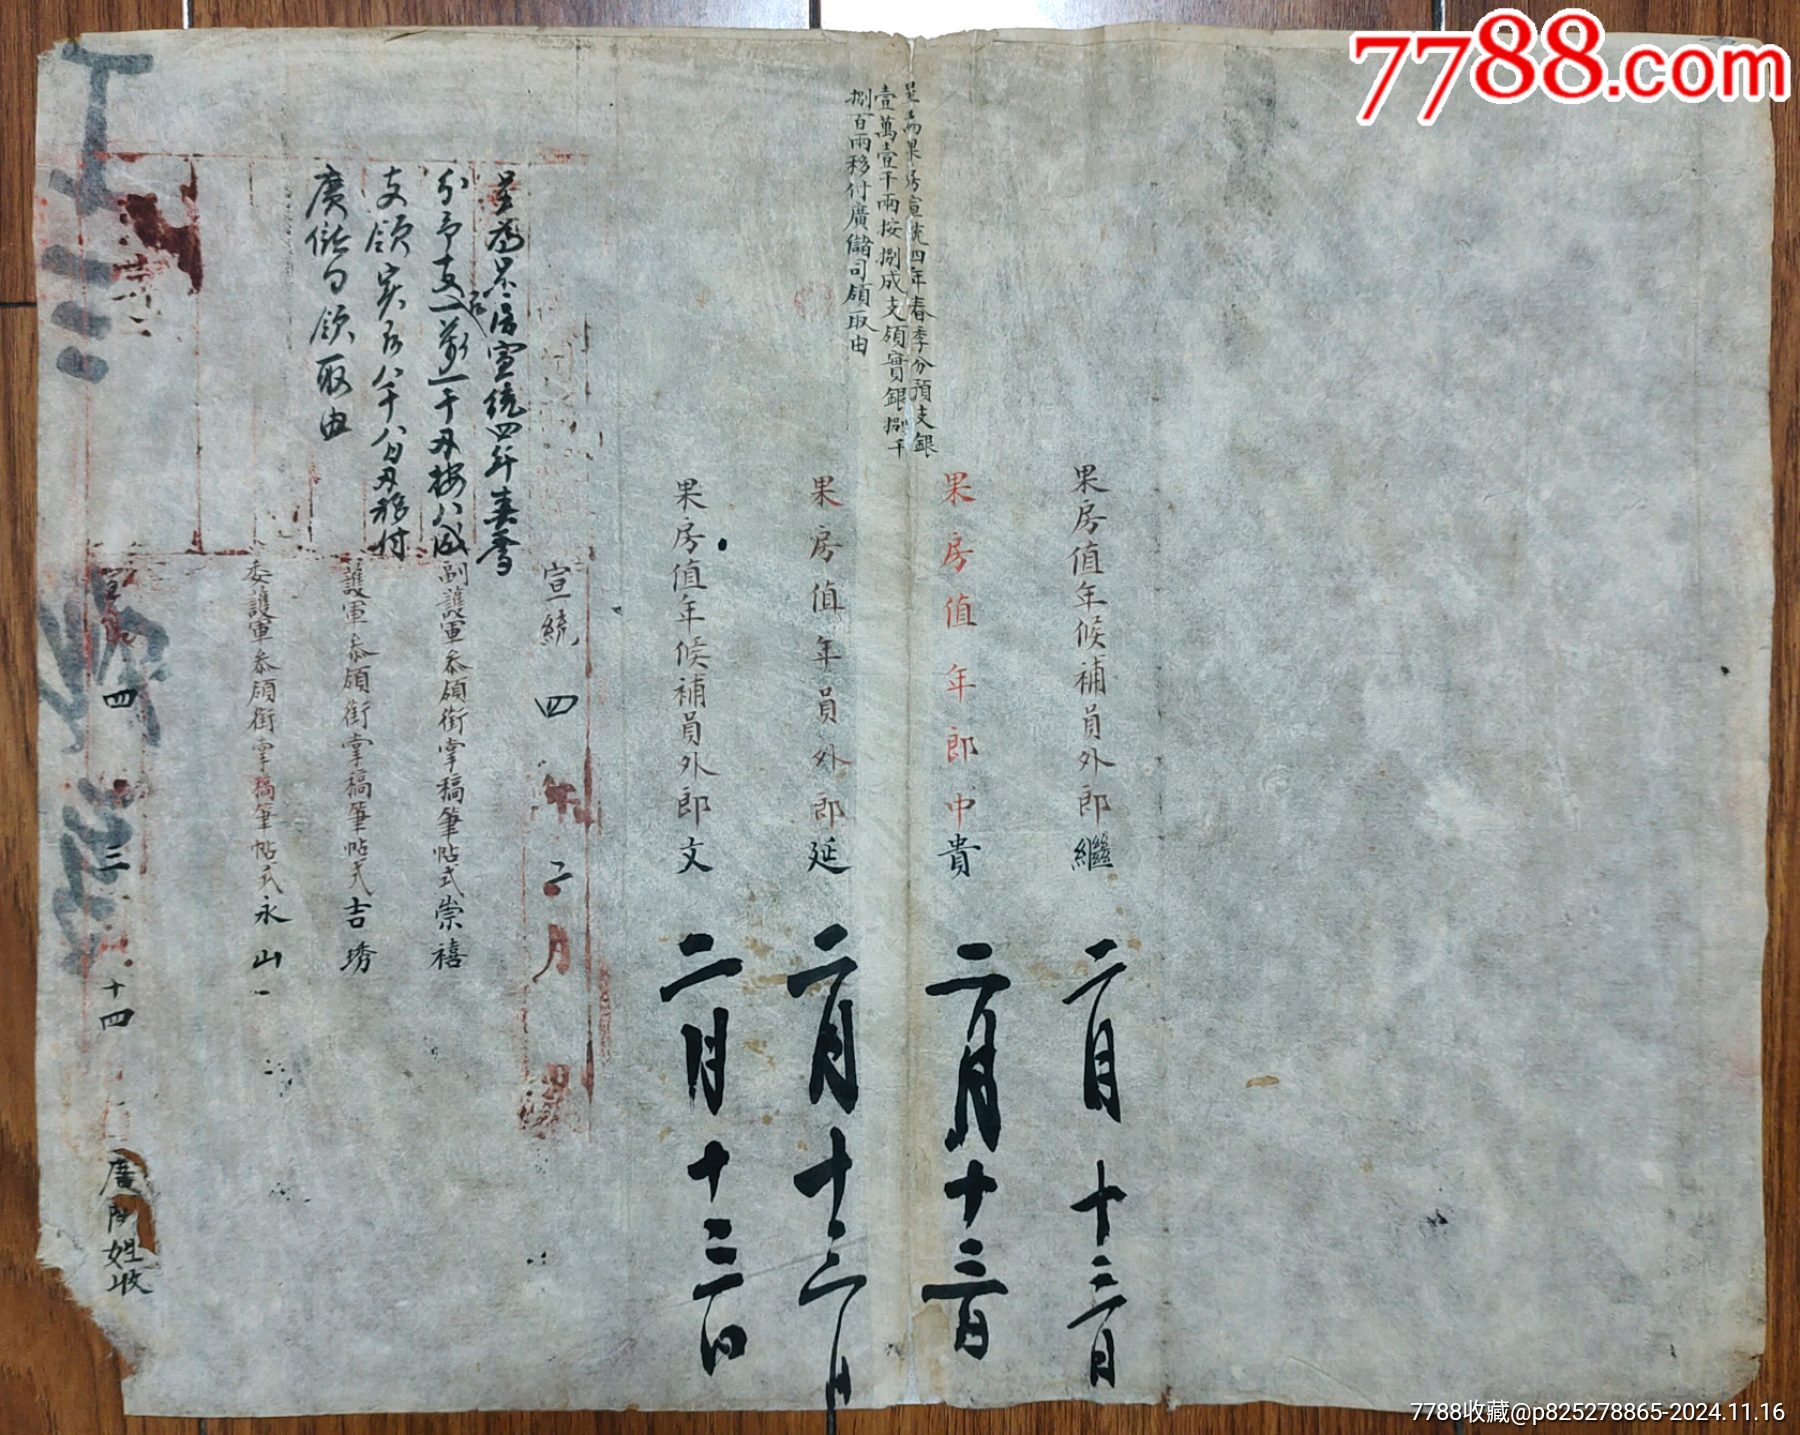 7788.com
果房值年候補員外郎繼
二月十三日
果房值年郎中貴
二月十三日
呈為果房宣統四年春季分預支銀
壹萬壹千兩按捌成支領實銀捌千
捌百兩移付廣儲司領取由
果房值年員外郎延
二月十三日
果房值年候補員外郎文
二月十三日
宣統四年二月
呈為果房宣統四年春季
分予支一萬一千兩按八成
支領实銀八千八百兩移付
廣儲司領取由
副護軍叅領銜掌稿筆帖式崇禧
護軍叅領銜掌稿筆帖式吉琇
委護軍叅領銜掌稿筆帖式永山
四 三 十四
7788收藏@p825278865-2024.11.16